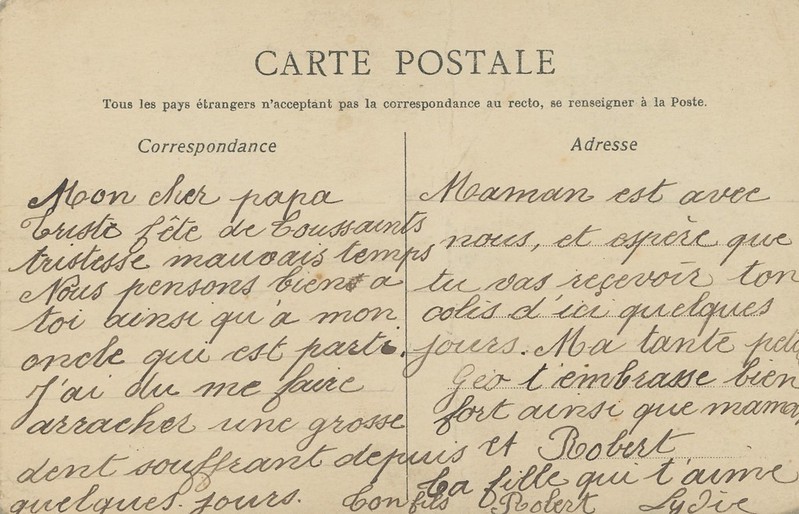 CARTE POSTALE
Tous les pays étrangers n'acceptant pas la correspondance au recto, se renseigner à la Poste.
Correspondance
Mon cher papa
Triste fête de Toussaints
tristesse mauvais temps
Nous pensons bien a
toi ainsi qu'à mon
oncle qui est parti.
J'ai du me faire
arracher une grosse
dent souffrant depuis
quelques jours.
Adresse
Maman est avec
nous, et espère que
tu vas reçevoir ton
colis d'ici quelques
jours. Ma tante
Géo t'embrasse bien
fort ainsi que mama
et Robert
Ta fille qui t'aime
Ton fils Robert Lydie